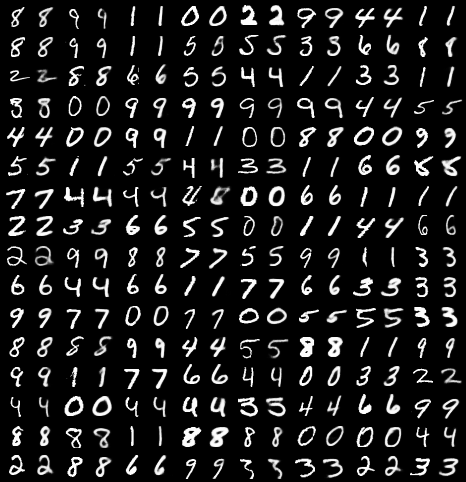 8 8 9 9 1 1 0 0 2 2 9 9 4 4 1 1
8 8 9 9 1 1 5 5 5 5 3 3 6 6 8 8
2 2 8 8 6 6 5 5 4 4 1 1 3 3 1 1
3 8 0 0 9 9 9 9 9 9 9 9 4 4 5 5
4 4 0 0 9 9 1 1 0 0 8 8 0 0 9 9
5 5 1 1 5 5 4 4 3 3 1 1 6 6 8 8
7 7 4 4 4 4 0 0 6 6 1 1 1 1
2 2 3 3 6 6 5 5 0 0 1 1 4 4 6 6
2 2 9 9 8 8 7 7 5 5 9 9 1 1 3 3
6 6 4 4 6 6 1 1 7 7 6 6 3 3 3 3
9 9 7 7 0 0 7 7 0 0 5 5 5 5 3 3
8 8 8 8 9 9 4 4 5 5 8 8 1 1 9 9
9 9 1 1 7 7 6 6 4 4 0 0 3 3 2 2
4 4 0 0 4 4 4 4 3 3 4 4 6 6 9 9
8 8 8 8 1 1 8 8 8 8 0 0 0 0 4 4
2 2 8 8 6 6 9 9 3 3 3 3 2 2 3 3